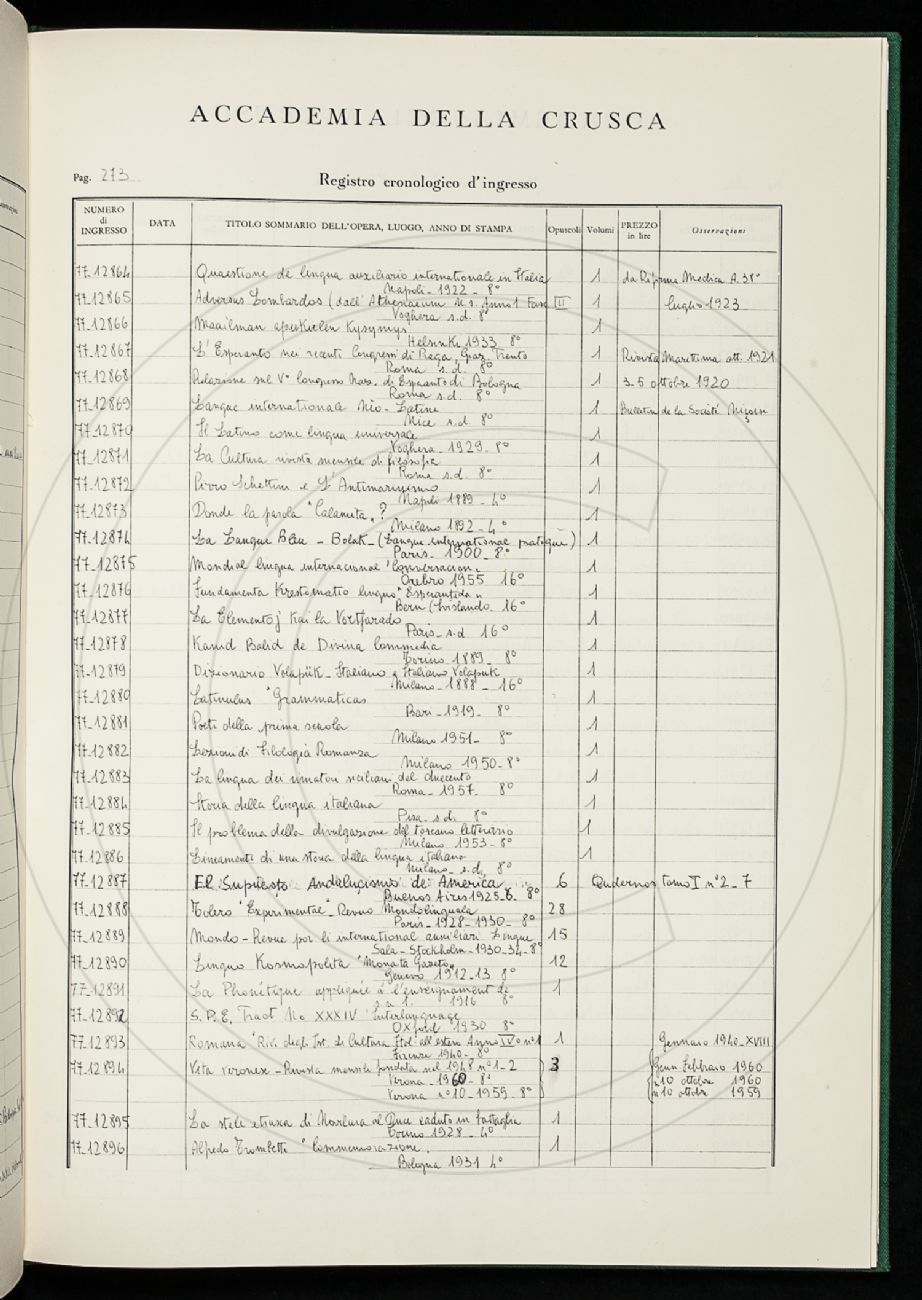 ACCADEMIA DELLA CRUSCA
Pag. 273
Registro cronologico d'ingresso
NUMERO di INGRESSO DATA TITOLO SOMMARIO DELL'OPERA, LUOGO, ANNO DI STAMPA Opuscoli Volumi PREZZO in lire Osservazioni
77-12864 Quaestione de lingua auxiliario internationale in Italia 1 da Riforma Medica A. 38°
Napoli - 1922 - 8°
77-12865 Adversus Lombardos (dall'Athenaeum N.S. Anno 1 Fasc II 1 luglio 1923
Voghera s.d. 8°
77-12866 Maailman apukielen Kysymys 1
Helsinki 1933 8°
77-12867 L'Esperanto nei recenti Congressi di Praga, Graz, Trento 1 Rivista Marittima ott. 1921
Roma s.d. 8°
77-12868 Relazione sul V° Congresso Naz. di Esperanto di Bologna 1 3-5 ottobre 1920
Roma s.d. 8°
77-12869 Langue internationale Néo-Latine 1 Bulletin de la Societé Niçoise
Nice s.d. 8°
77-12870 Il Latino come lingua universale 1
Voghera - 1929 - 8°
77-12871 La Cultura rivista mensile di filosofia 1
Roma s.d. 8°
77-12872 Pirro Schettini e L'Antimarinismo 1
Napoli 1889 - 4°
77-12873 Donde la parola "Calamita"? 1
Milano 1892 - 4°
77-12874 La Langue Bleu - Bolak - (Langue international pratique) 1
Paris - 1900 - 8°
77-12875 Mondial lingua internacional "Conversacion" 1
Örebro 1955 16°
77-12876 Fundamenta Krestomatio lingvo "Esperantida" 1
Bern 16°
77-12877 La Elementoj Kai la Vortfarado 1
Paris - s.d. 16°
77-12878 Kanid Balid de Divina Commedia 1
Torino 1889 - 8°
77-12879 Dizionario Volapük - Italiano e Italiano Volapük 1
Milano - 1888 - 16°
77-12880 Latinulus "Grammaticas 1
Bari - 1919 - 8°
77-12881 Poeti della prima scuola 1
Milano 1951 - 8°
77-12882 Lezioni di Filologia Romanza 1
Milano 1950 - 8°
77-12883 La lingua dei rimatori siciliani del duecento 1
Roma - 1957 - 8°
77-12884 Storia della lingua italiana 1
Pisa - s.d. 8°
77-12885 Il problema della divulgazione del toscano letterario 1
Milano 1953 - 8°
77-12886 Lineamenti di una storia della lingua italiana 1
Milano - s.d. 8°
77-12887 El Supuesto Andalucismo de America 6 Quadernos tomo I n° 2-7
Buenos Aires 1925-6 - 8°
77-12888 Tolero "Experimental" - Revuo Mondolinguala 28
Paris - 1928-1930 - 8°
77-12889 Mondo - Revue por li international auxiliari Lingue 15
Sala - Stockholm - 1930-34 - 8°
77-12890 Linguo Kosmopolita "Monata Gazeto" 12
Genève 1912-13 8°
77-12891 La Phonétique appliquée à l'enseignement de 1
s.n.l. 1916 8°
77-12892 S.P.E. Tract No XXXIV Interlanguage
Oxford 1930 8°
77-12893 Romana "Riv. degli Ist. di Cultura Ital. all'estero Anno IV° n°1 1 Gennaio 1940-XVIII
Firenze 1940 - 8°
77-12894 Vita veronese - Rivista mensile fondata nel 1948 n° 1-2 3 Genn. Febbraio 1960
Verona - 1960 - 8° n 10 ottobre 1960
Verona n° 10 - 1959 - 8° n 10 ottobre 1959
77-12895 La stele etrusca di Novilara al Duce caduto in battaglia 1
Torino 1928 - 4°
77-12896 Alfredo Trombetti "Commemorazione" 1
Bologna 1931 4°